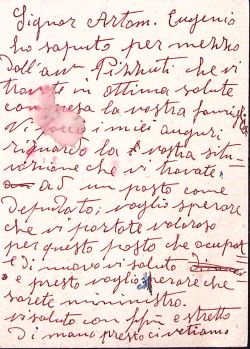 Signor Artom. Eugenio
ho saputo per mezzo
dall'avv Pizzuti che vi
trovate in ottima salute
compresa la vostra famiglia
Vi faccio i miei auguri
riguardo la vostra situ-
azione che vi trovate
ad un posto come
deputato; voglio sperare
che vi portate valoroso
per questo posto che occupat
e di nuovo vi saluto
e presto voglio sperare che
sarete mininistro.
vi saluto con più e stretto
di mano presto ci vediamo